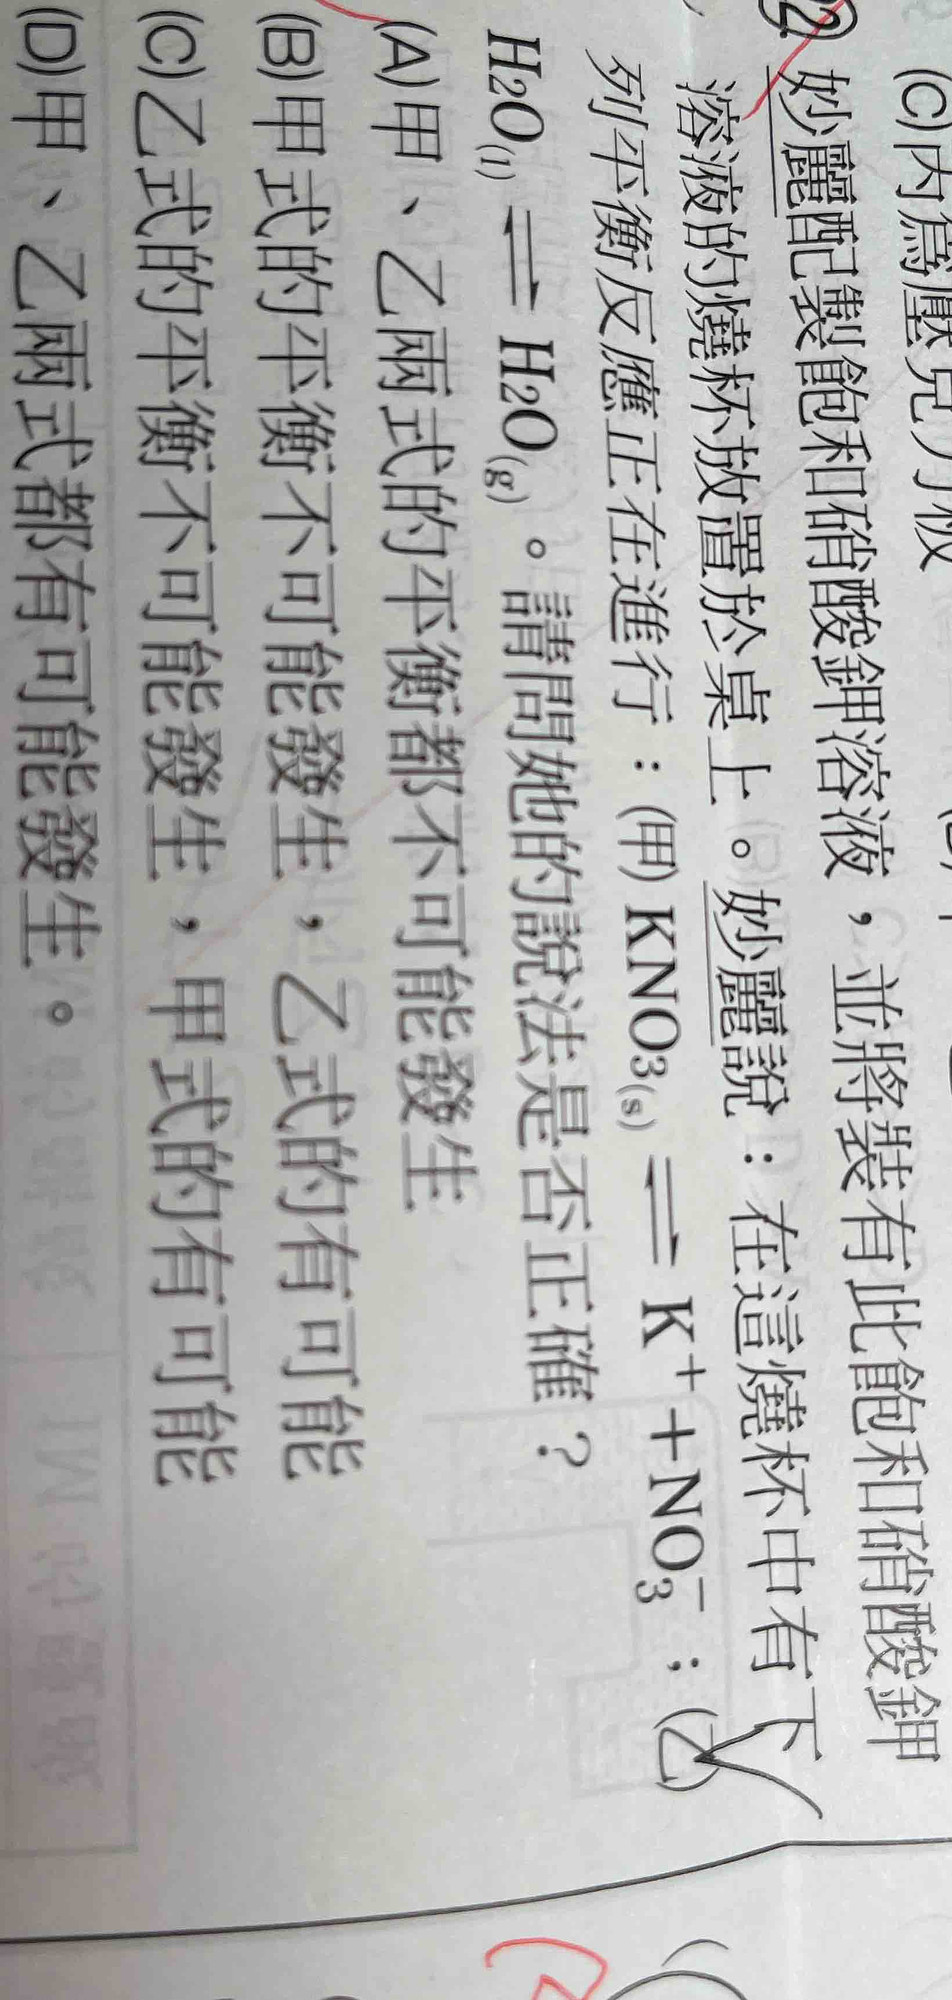 (C)內爲壓克力板
22 妙麗配製飽和硝酸鉀溶液，並將裝有此飽和硝酸鉀
溶液的燒杯放置於桌上。妙麗說：在這燒杯中有下
列平衡反應正在進行：(甲) KNO3(s) ⇌ K⁺ + NO₃⁻；(乙)
H2O(l) ⇌ H2O(g)。請問她的說法是否正確？
(A)甲、乙兩式的平衡都不可能發生
(B)甲式的平衡不可能發生，乙式的有可能
(C)乙式的平衡不可能發生，甲式的有可能
(D)甲、乙兩式都有可能發生。